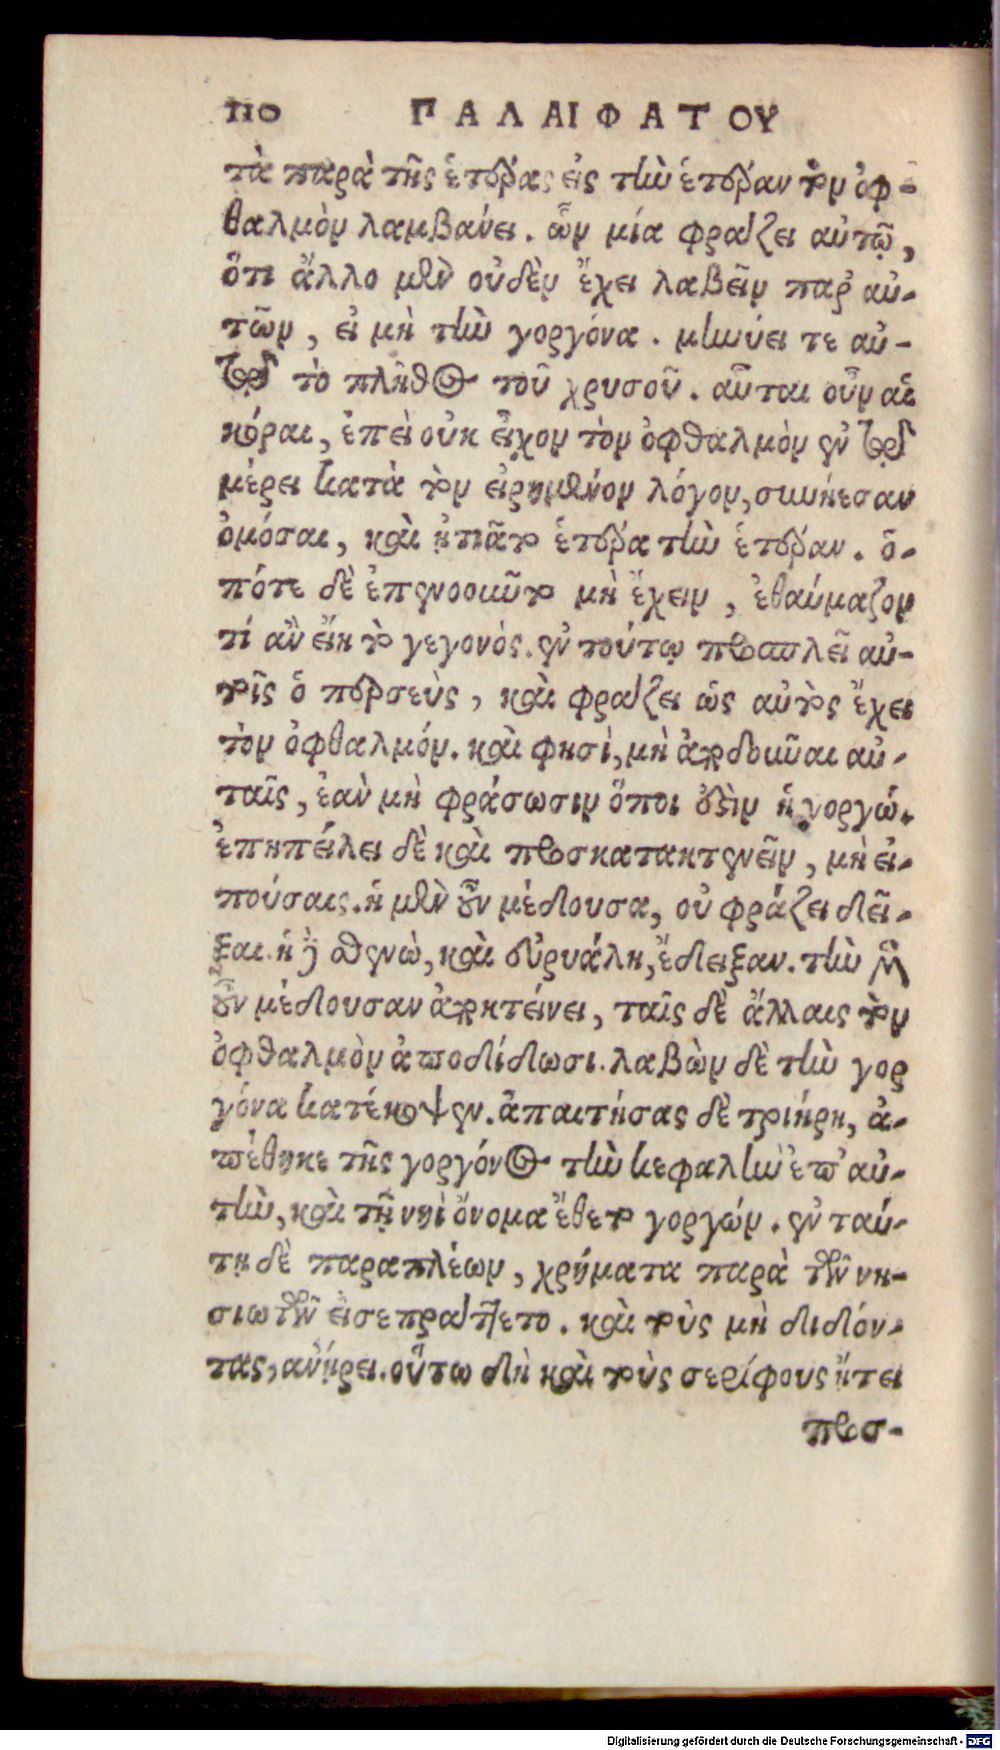 110 ΠΑΛΑΙΦΑΤΟΥ
τὰ παρὰ τῆς ἑτέρας εἰς τὴν ἑτέραν τὸν ὀφ-
θαλμὸν λαμβάνει. ὧν μία φράζει αὐτῷ,
ὅτι ἄλλο μὲν οὐδὲν ἔχει λαβεῖν παρ' αὐ-
τῶν, εἰ μὴ τὴν γοργόνα. μηνύει τε αὐ-
τῷ τὸ πλῆθος τοῦ χρυσοῦ. αὗται οὖν αἱ
κόραι, ἐπεὶ οὐκ εἶχον τὸν ὀφθαλμὸν ἐν τῷ
μέρει κατὰ τὸν εἰρημένον λόγον, συνήεσαν
ὁμόσαι, καὶ ᾐτιᾶτο ἑτέρα τὴν ἑτέραν. ὁ-
πότε δὲ ἐπενοοῦντο μὴ ἔχειν, ἐθαύμαζον
τί ἂν εἴη τὸ γεγονός. ἐν τούτῳ προσπλεῖ αὐ-
τοῖς ὁ περσεὺς, καὶ φράζει ὡς αὐτὸς ἔχει
τὸν ὀφθαλμόν. καὶ φησὶ, μὴ ἀποδοῦναι αὐ-
ταῖς, ἐὰν μὴ φράσωσιν ὅποι ἐστὶν ἡ γοργώ.
ἐπηπείλει δὲ καὶ προσκατακτενεῖν, μὴ εἰ-
πούσαις. ἡ μὲν οὖν μέδουσα, οὐ φράζει δεῖ-
ξαι. ἡ δὲ σθενὼ, καὶ εὐρυάλη, ἔδειξαν. τὴν μὲν
οὖν μέδουσαν ἀποκτείνει, ταῖς δὲ ἄλλαις τὸν
ὀφθαλμὸν ἀποδίδωσι. λαβὼν δὲ τὴν γορ
γόνα κατέκοψεν. ἀπαιτήσας δὲ τριήρη, ἀ-
πέθηκε τῆς γοργόνος τὴν κεφαλὴν ἐπ' αὐ-
τὴν, καὶ τῇ νηὶ ὄνομα ἔθετο γοργών. ἐν ταύ-
τῃ δὲ παραπλέων, χρήματα παρὰ τῶν νη-
σιωτῶν εἰσεπράττετο. καὶ τοὺς μὴ διδόν-
τας, ἀνῄρει. οὕτω δὴ καὶ τοὺς σερίφους ᾔτει
προσ-
Digitalisierung gefördert durch die Deutsche Forschungsgemeinschaft - DFG